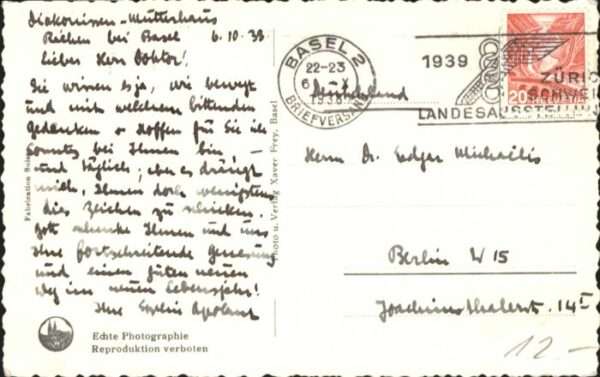 Diakonissen-Mutterhaus
Riehen bei Basel 6.10.38
Lieber Herr Doktor!
Sie wissen es ja, wie bewegt
und mit welchem bittenden
Gedenken + Hoffen für Sie ich
bei Ihnen bin
und täglich; aber es drängt
mich, Ihnen doch wenigstens
dies Zeichen zu schicken.
Gott schenke Ihnen und uns
Ihre fortschreitende Genesung
und einen guten neuen
Weg im neuen Lebensjahr!
Ihre
Echte Photographie
Reproduktion verboten
Photo u. Verlag Xaver Frey, Basel
BASEL 2
22-23
1938
BRIEFVERSAND
1939
ZÜRICH
SCHWEIZ
LANDESAUSSTELLUNG
20
Deutschland
Herrn Dr. Edgar Michaëlis
Berlin W 15
Joachimsthalerst. 14 I
12-